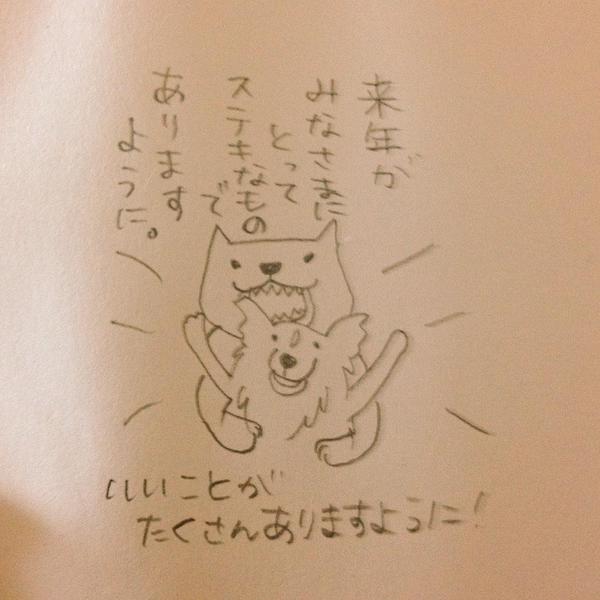 来年が
みなさまに
とって
ステキなもの
で
あります
ように。
いいことが
たくさんありますように!